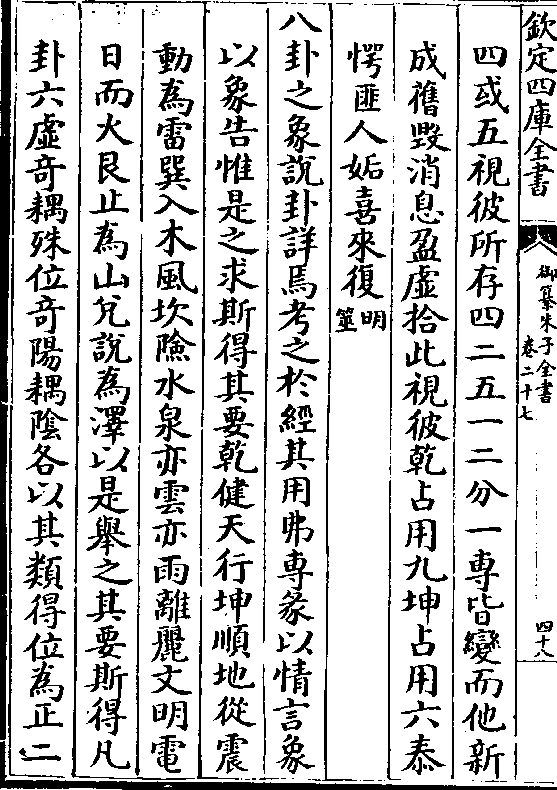 欽定四庫全書
御纂朱子全書
卷二十七
四十八
四或五視彼所存四二五一二分一專皆變而他新
成舊毀消息盈虛拾此視彼乾占用九坤占用六泰
愕匪人姤喜來復明筮
八卦之象說卦詳焉考之於經其用弗專彖以情言象
以象告惟是之求斯得其要乾健天行坤順地從震
動為雷巽入木風坎險水泉亦雲亦雨離麗文明電
日而火艮止為山兌說為澤以是舉之其要斯得凡
卦六虛奇耦殊位奇陽耦陰各以其類得位為正二